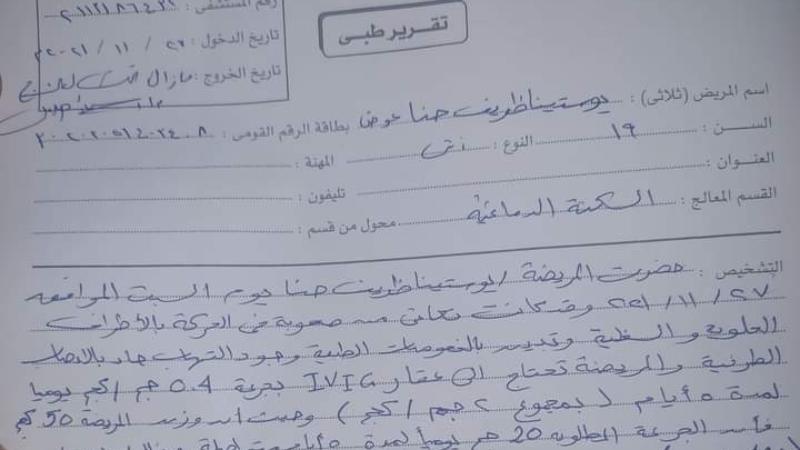 تقرير طبى
رقم المستشفى :
تاريخ الدخول : ٢٧ / ١١ / ٢٠٢١
تاريخ الخروج : مازال تحت العلاج
اسم المريض (ثلاثى) : يوستينا ظريف حنا عوض بطاقة الرقم القومى :
السن : ١٩ النوع : أنثى المهنة :
العنوان : تليفون :
القسم المعالج : السكتة الدماغية محول من قسم :
التشخيص : حضرت المريضة / يوستينا ظريف حنا يوم السبت الموافق
٢٧ / ١١ / ٢٠٢١ وقد كانت تعانى من صعوبة فى الحركة بالأطراف
العلوية والسفلية وتبين بالفحوصات الطبية وجود التهاب حاد بالأعصاب
الطرفية والمريضة تحتاج الى عقار IVIG بجرعة 0.4 جم / كجم يوميا
لمدة ٥ أيام ( بمجموع ٢ جم / كجم ) وحيث أن وزن المريضة 50 كجم
فأن الجرعة المطلوبة 20 جم يوميا لمدة ٥ أيام